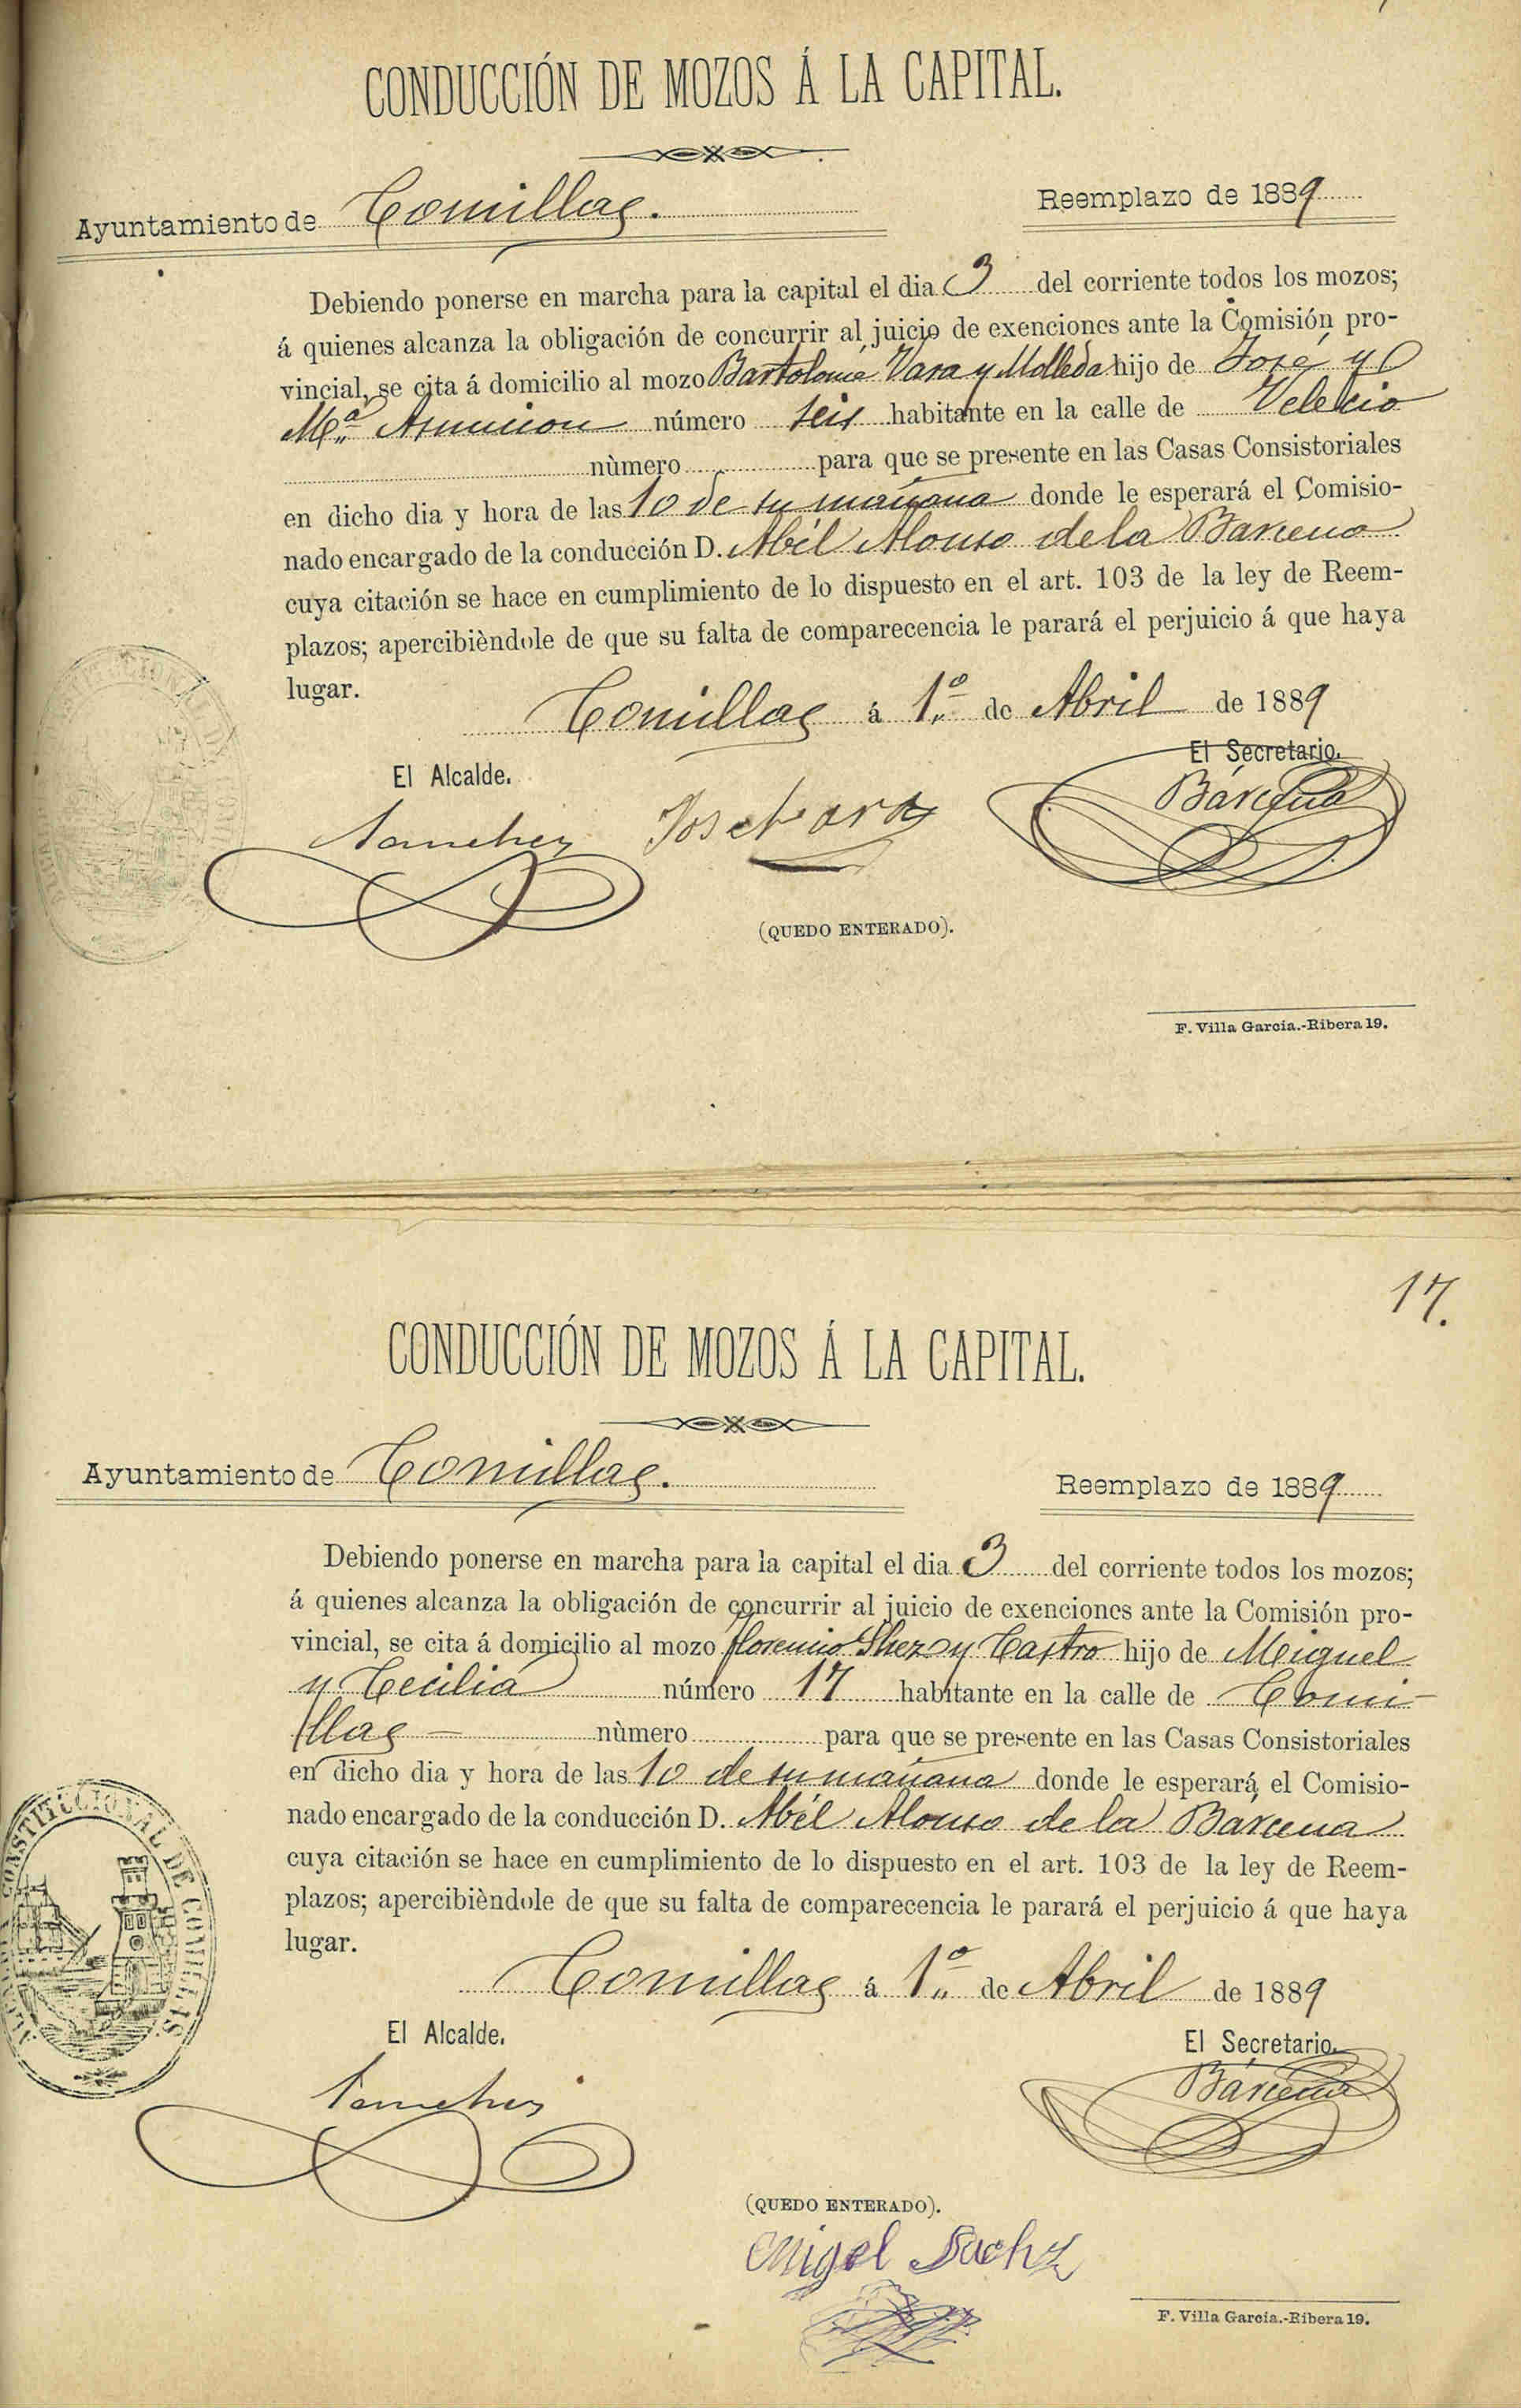 CONDUCCIÓN DE MOZOS Á LA CAPITAL.
Ayuntamiento de Comillas.
Reemplazo de 1889
Debiendo ponerse en marcha para la capital el dia 3 del corriente todos los mozos;
á quienes alcanza la obligación de concurrir al juicio de exenciones ante la Comisión pro-
vincial, se cita á domicilio al mozo Bartolomé Vara y Molleda hijo de José y
Mª Asuncion número seis habitante en la calle de Velecio
nùmero para que se presente en las Casas Consistoriales
en dicho dia y hora de las 10 de su mañana donde le esperará el Comisio-
nado encargado de la conducción D. Abél Alonso de la Barcena
cuya citación se hace en cumplimiento de lo dispuesto en el art. 103 de la ley de Reem-
plazos; apercibièndole de que su falta de comparecencia le parará el perjuicio á que haya
lugar.
Comillas á 1.º de Abril de 1889
El Alcalde.
El Secretario.
Sanchez
Jose Vara
Bárcena
(QUEDO ENTERADO).
F. Villa García.-Ribera 19.
17.
CONDUCCIÓN DE MOZOS Á LA CAPITAL.
Ayuntamiento de Comillas.
Reemplazo de 1889
Debiendo ponerse en marcha para la capital el dia 3 del corriente todos los mozos;
á quienes alcanza la obligación de concurrir al juicio de exenciones ante la Comisión pro-
vincial, se cita á domicilio al mozo Florencio Shez y Castro hijo de Miguel
y Cecilia número 17 habitante en la calle de Comi-
llas nùmero para que se presente en las Casas Consistoriales
en dicho dia y hora de las 10 de su mañana donde le esperará el Comisio-
nado encargado de la conducción D. Abél Alonso de la Barcena
cuya citación se hace en cumplimiento de lo dispuesto en el art. 103 de la ley de Reem-
plazos; apercibièndole de que su falta de comparecencia le parará el perjuicio á que haya
lugar.
CONSTITUCIONAL DE COMILLAS
Comillas á 1.º de Abril de 1889
El Alcalde.
El Secretario.
Sanchez
Bárcena
(QUEDO ENTERADO).
Migel Sachz
F. Villa García.-Ribera 19.